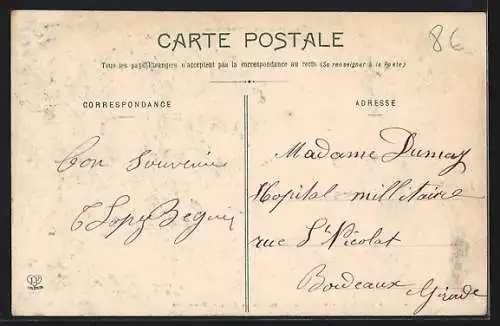 CARTE POSTALE
86
Tous les pays étrangers n'acceptent pas la correspondance au recto (Se renseigner à la Poste)
CORRESPONDANCE
Bon souvenir
ADRESSE
Madame Dumay
Hopital militaire
rue St Nicolat
Bordeaux Gironde